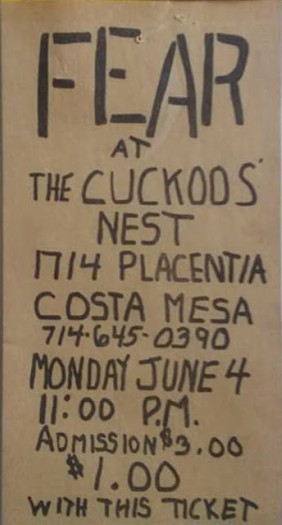 FEAR
AT
THE CUCKOOS'
NEST
1714 PLACENTIA
COSTA MESA
714-645-0390
MONDAY JUNE 4
11:00 P.M.
ADMISSION $3.00
$1.00
WITH THIS TICKET